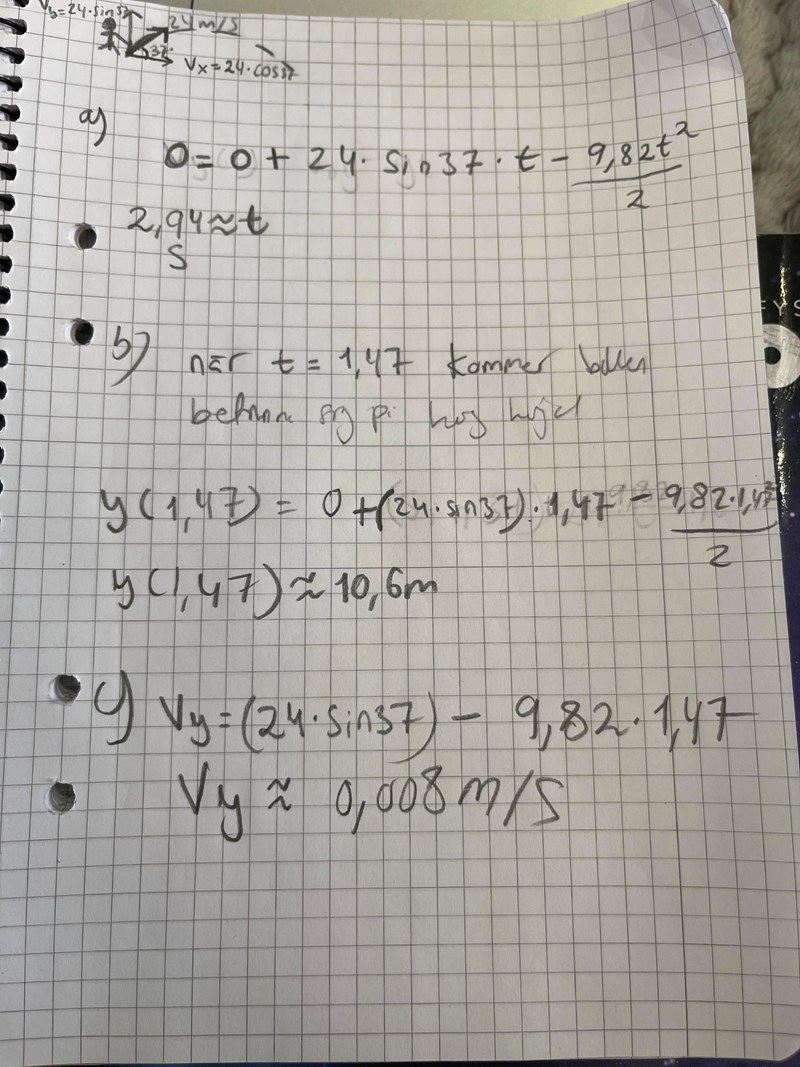 Vy=24·sin37
24 m/s
37°
Vx=24·cos37
a)
0=0+24·sin37·t-9,82t²/2
2,94≈t
s
b) när t=1,47 kommer bollen
på hög höjd
y(1,47)=0+(24·sin37)·1,47-9,82·1,47²/2
y(1,47)≈10,6m
c) Vy=(24·sin37)-9,82·1,47
Vy≈0,008m/s